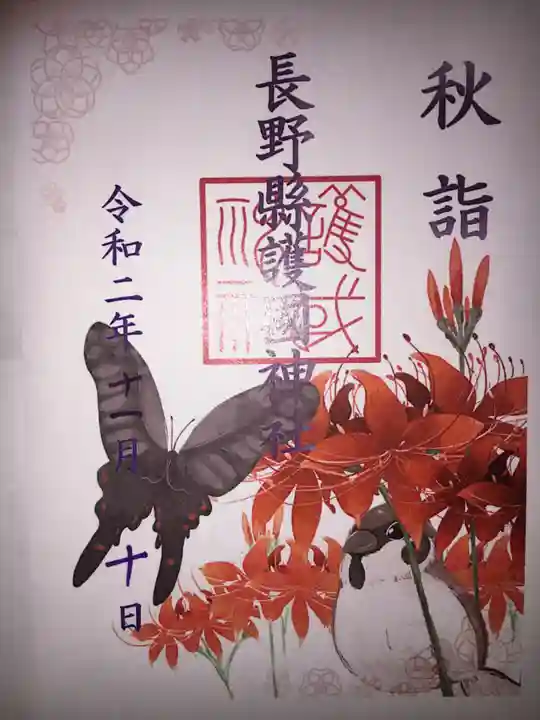 秋詣
長野縣護國神社
令和二年十一月 十日